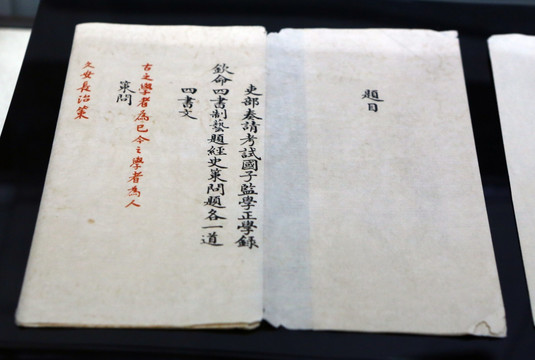 題目
吏部奏請考試國子監學正學錄
欽命四書制藝題經史策問題各一道
四書文
古之學者為已今之學者為人
策問
久安長治策